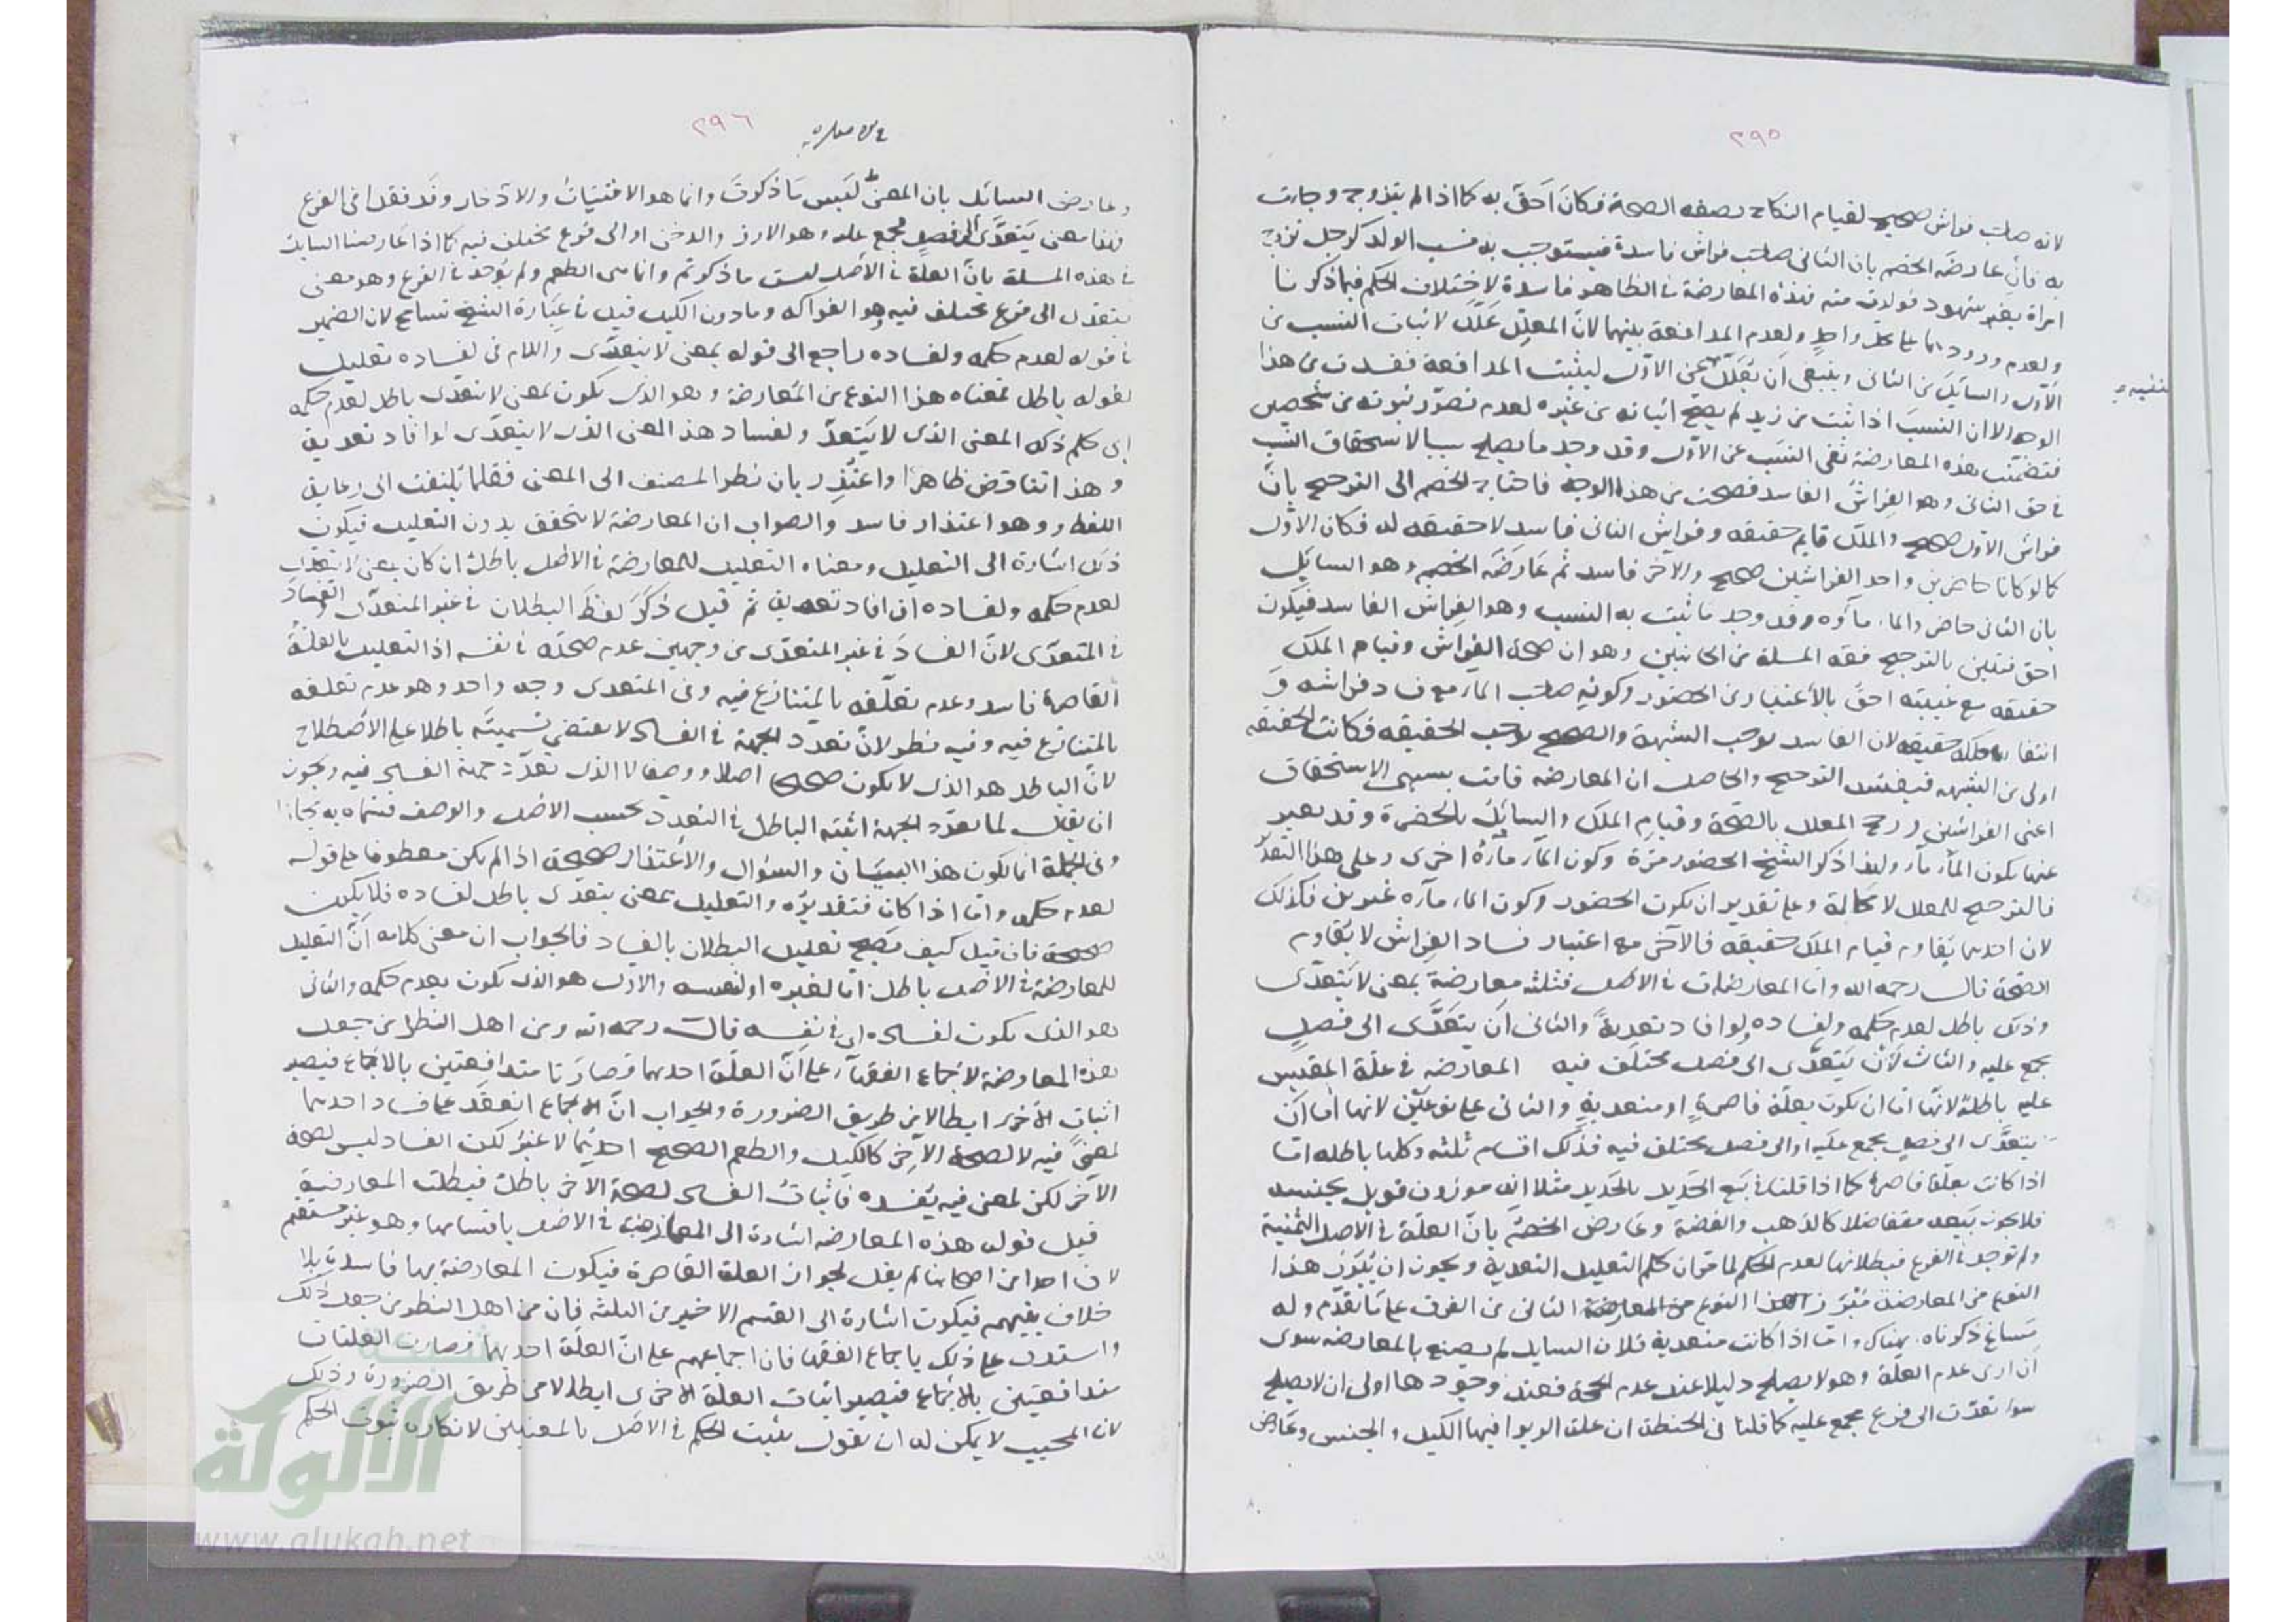 ٢٩٥
لانه صاحب فراش صحيح لقيام النكاح بصفه الصحة فكان احق به كما اذا لم يتزوج وجات
به فان عارضه الخصم بان الثانى صاحب فراش فاسد فيستوجب به نسب الولد كرجل تزوج
امراة بغير شهود فولدت منه فهذه المعارضة فى الظاهر فاسدة لاختلاف الحكم فيما ذكرنا
ولعدم ورودهما على محل واحد ولعدم المدافعة بينهما لان المعلل علل لاثبات النسب من
الاول والسايل من الثانى وينبغى ان يعلل عن الاول ليثبت المدافعة ففسدت من هذا
الوجه الا ان النسب اذا ثبت من زيد لم يصح اثباته من غيره لعدم تصور ثبوته من شخصين
فتضمنت هذه المعارضة نفى النسب عن الاول وقد وجد ما يصلح سببا لاستحقاق النسب
فى حق الثانى وهو الفراش الفاسد فصحت من هذا الوجه فاحتاج الخصم الى الترجيح بان
فراش الاول صحيح والملك قايم حقيقه وفراش الثانى فاسد لا حقيقه له فكان الاول
كما لو كانا حاضرين واحد الفراشين صحيح والآخر فاسد ثم عارضه الخصم وهو السايل
بان الثانى حاضر والماء مآؤه وقد وجد ما ثبت به النسب وهو الفراش الفاسد فيكون
احق فتبين بالترجيح فقه المسلة من الجانبين وهو ان صحة الفراش وقيام الملك
حقيقه مع غيبته احق بالاعتبار من الحضور وكونه صاحب الماء مع فساد فراشه و
انتفاء ملكه حقيقه لان الفاسد يوجب الشبهة والصحيح يوجب الحقيقه فكانت الحقيقه
اولى من الشبهه فيفسد الترجيح والحاصل ان المعارضه قامت بسببى الاستحقاق
اعنى الفراشين ورجح المعلل بالصحة وقيام الملك والسايل بالحضرة وقد يعبر
عنها بكون الماء مآءه ولهذا ذكر الشيخ الحضور مرة وكون الماء مآءه اخرى وعلى هذا التقدير
فالترجيح للمعلل لا محالة وعلى تقدير ان يكون الحضور وكون الماء مآءه غيرين فكذلك
لان احدهما يقاوم قيام الملك حقيقه فالآخر مع اعتبار فساد الفراش لا يقاوم
الصحة قال رحمه الله واما المعارضات فى الاصل فثلثه معارضة بمعنى لا يتعدى
وذلك باطل لعدم حكمه ولفساده لو افاد تعدية والثانى ان يتعدى الى فصل
مجمع عليه والثالث ان يتعدى الى فصل مختلف فيه المعارضه فى علة المقيس
عليه باطلة لانها اما ان يكون بعلة قاصرة او متعدية والثانى على نوعين لانها اما ان
يتعدى الى فصل مجمع عليه او الى فصل مختلف فيه فذلك اقسام ثلثه وكلها باطله اما
اذا كانت بعلة قاصرة كما اذا قلنا فى بيع الحديد بالحديد مثلا انه موزون قوبل بجنسه
فلا يجوز بيعه متفاضلا كالذهب والفضة وعارض الخصم بان العلة فى الاصل الثمنية
ولم توجد فى الفرع فبطلانها لعدم الحكم لما مر ان حكم التعليل التعدية ويجوز ان يبرز هذا
النوع من المعارضة مبرز هذا النوع من المعارضة الثانى من الفرق على ما تقدم وله
مساغ ذكرناه هناك واما اذا كانت متعدية فلان السايل لم يصنع بالمعارضه سوى
ان ارى عدم العلة وهو لا يصلح دليلا عند عدم الحجة فعند وجودها اولى ان لا يصلح
سوا تعدت الى فرع مجمع عليه كما قلنا فى الحنطة ان علة الربوا فيها الكيل والجنس وعارض
٢٩٦
وعارض السائل بان المعنى ليس ما ذكرت وانما هو الاقتيات والادخار وقد فقدا فى الفرع
فهذا معنى يتعدى الى فصل مجمع عليه وهو الارز والدخن او الى فرع مختلف فيه كما اذا عارضنا السايل
فى هذه المسلة بان العلة فى الاصل ليست ما ذكرتم وانما هى الطعم ولم يوجد فى الفرع وهو معنى
يتعدى الى فرع مختلف فيه وهو الفواكه وما دون الكيل قيل فى عبارة الشيخ تسامح لان الضمير
فى قوله لعدم حكمه ولفساده راجع الى قوله بمعنى لا يتعدى واللام فى لفساده تعليل
لقوله باطل فمعناه هذا النوع من المعارضة وهو الذى يكون بمعنى لا يتعدى باطل لعدم حكمه
اى حكم ذلك المعنى الذى لا يتعد ولفساد هذا المعنى الذى لا يتعدى لو افاد تعدية
وهذا تناقض ظاهرا واعتذر بان نظر المصنف الى المعنى فقلما يلتفت الى رعاية
اللفظ وهو اعتذار فاسد والصواب ان المعارضة لا يتحقق بدون التعليل فيكون
ذلك اشارة الى التعليل ومعناه التعليل للمعارضة فى الاصل باطل ان كان بمعنى لا يتعدى
لعدم حكمه ولفساده ان افاد تعدية ثم قيل ذكر لفظ البطلان فى غير المتعدى والفساد
فى المتعدى لان الفساد فى غير المتعدى من وجهين عدم صحته فى نفسه اذ التعليل بالعلة
القاصرة فاسد وعدم تعلقه بالمتنازع فيه وفى المتعدى وجه واحد وهو عدم تعلقه
بالمتنازع فيه وفيه نظر لان تعدد الجهة فى الفساد لا يقتضى تسميته باطلا على الاصطلاح
لان الباطل هو الذى لا يكون صحيحا اصلا ووصفا لا الذى تعدد جهة الفساد فيه ويجوز
ان يقال لما تعدد الجهة اشبه الباطل فى التعدد بحسب الاصل والوصف فسماه به مجازا
وفى الجملة انما يكون هذا البيان والسؤال والاعتذار صحيحة اذا لم يكن معطوفا على قوله
لعدم حكمه واما اذا كان فتقديره والتعليل بمعنى يتعدى باطل لفساده فلا يكون
صحيحة فان قيل كيف يصح تعليل البطلان بالفساد فالجواب ان معنى كلامه ان التعليل
للمعارضة فى الاصل باطل اما لغيره او لنفسه والاول هو الذى يكون بعدم حكمه والثانى
هو الذى يكون لفساده اى فى نفسه قال رحمه الله ومن اهل النظر من جعل
هذه المعارضة لاجماع الفقهاء على ان العلة احدهما فصارتا متدافعتين بالاجماع فيصير
اثبات الاخرى ابطالا من طريق الضرورة والجواب ان الاجماع انعقد على فساد احدهما
لمعنى فيه لا لصحة الآخر كالكيل والطعم الصحيح احدهما لا غير لكن الفساد ليس لصحة
الآخر لكن لمعنى فيه يفسده فاثبات الفساد لصحة الآخر باطل فبطلت المعارضة
قيل قوله هذه المعارضه اشارة الى المعارضة فى الاصل باقسامها وهو غير مستقيم
لان احدا من اصحابنا لم يقل بجواز العلة القاصرة فيكون المعارضة بها فاسدة بلا
خلاف بينهم فيكون اشارة الى القسم الاخير من الثلثه فان من اهل النظر من جعل ذلك
واستدل على ذلك باجماع الفقهاء فان اجماعهم على ان العلة احديهما فصارت العلتان
متدافعتين بالاجماع فيصير اثبات العلة الاخرى ابطالا من طريق الضرورة وذلك
لان المجيب لا يمكن له ان يقول يثبت الحكم فى الاصل بالمعنيين لانكاره ثبوت الحكم
شبكة
الألوكة
www.alukah.net